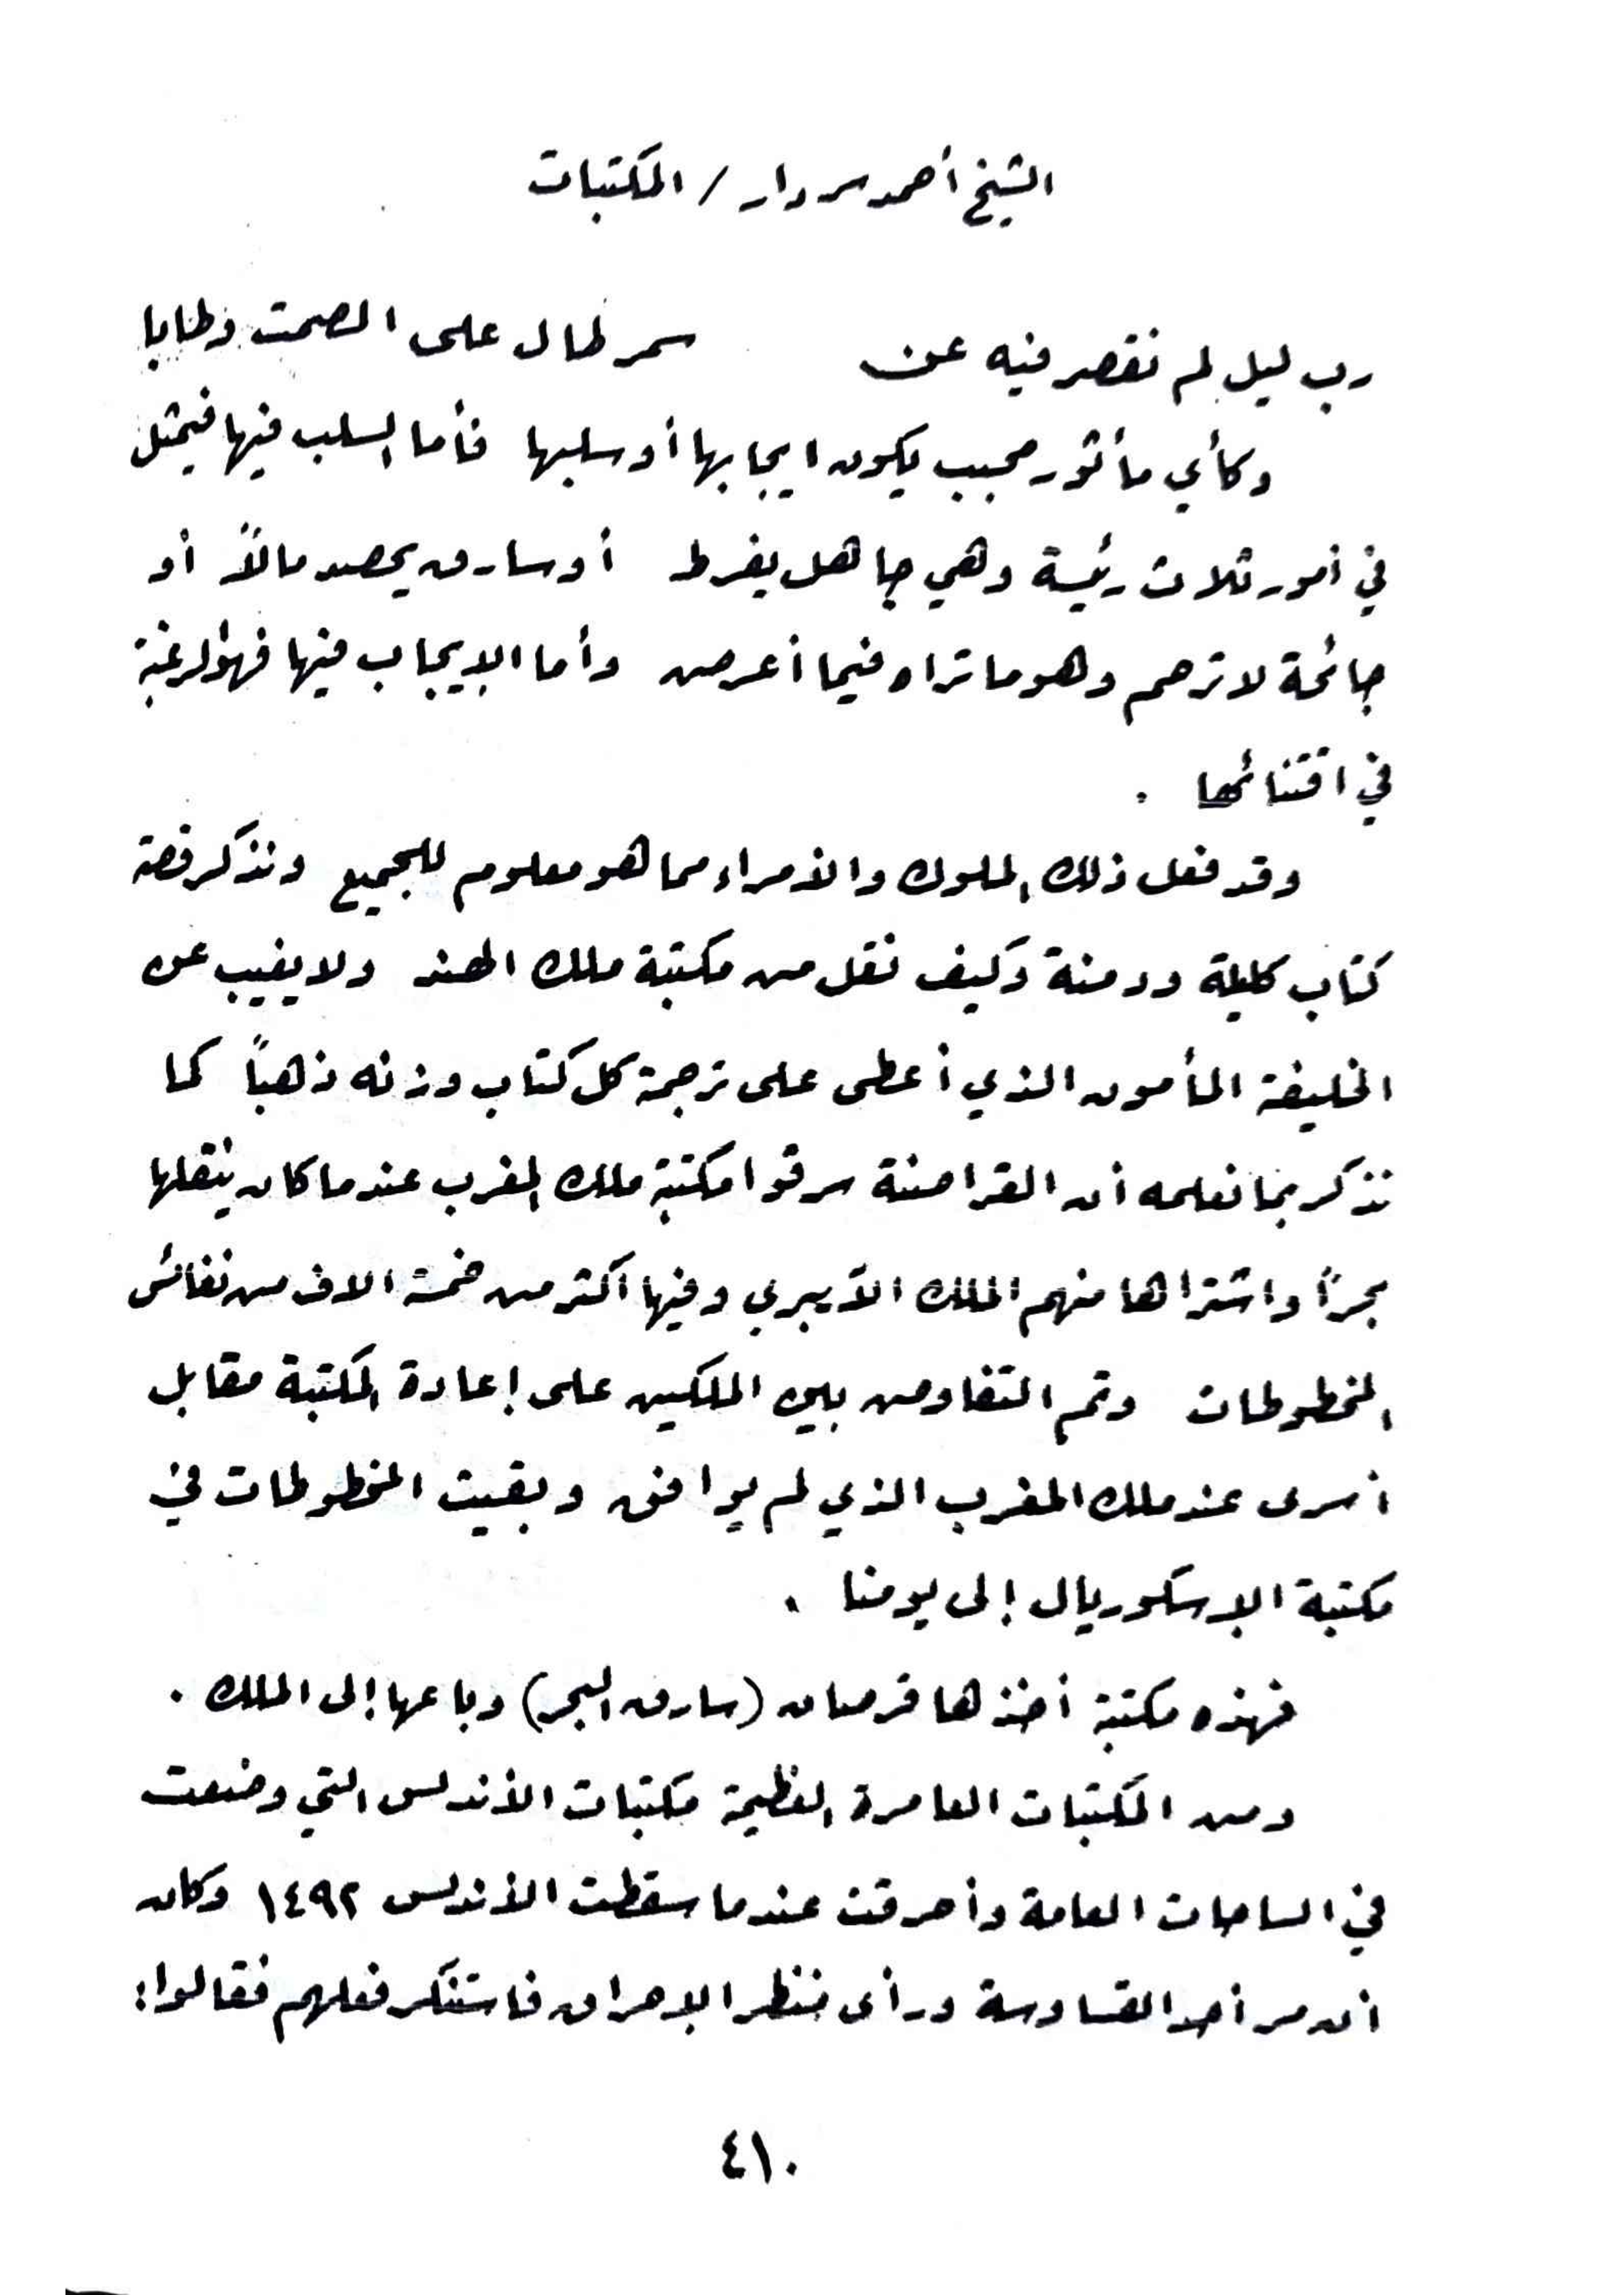 الشيخ أحمد سردار / المكتبات
رب ليل لم نقصر فيه عن سمر طال على الصمت وطابا
وكأي مأثور محبب يكون ايجابها أو سلبها فأما السلب فيها فيتمثل
في أمور ثلاث رئيسة وهي جاهل يفرط أو سارق يحصد مالاً أو
جائحة لا ترحم وهو ما تراه فيما أعرض وأما الإيجاب فيها فهو الرغبة
في اقتنائها .
وقد فعل ذلك الملوك والأمراء مما هو معلوم للجميع ونذكر قصة
كتاب كليلة ودمنة وكيف نقل من مكتبة ملك الهند ولا يغيب عن
الخليفة المأمون الذي أعطى على ترجمة كل كتاب وزنه ذهباً كما
نذكر بما نعلمه أن القراصنة سرقوا مكتبة ملك المغرب عندما كان ينقلها
بحراً واشتراها منهم الملك الأيبري وفيها أكثر من خمسة الاف من نفائس
المخطوطات وتم التفاوض بين الملكين على إعادة المكتبة مقابل
أسرى عند ملك المغرب الذي لم يوافق وبقيت المخطوطات في
مكتبة الإسكوريال إلى يومنا .
فهذه مكتبة أخذها قرصان (سارق البحر) وباعها إلى الملك .
ومن المكتبات العامرة العظيمة مكتبات الأندلس التي وضعت
في الساحات العامة وأحرقت عندما سقطت الأندلس ١٤٩٢ وكان
أن مر أحد القساوسة ورأى منظر الإحراق فاستنكر فعلهم فقالوا:
٤١٠